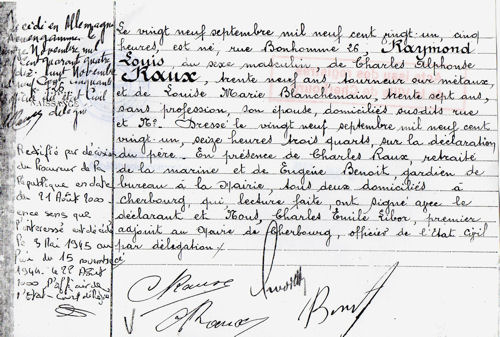 Décédé en Allemagne
Neuengamme, le
Novembre mil
cent quarante quatre
Novembre
cent cinquante
délégué
Rectifié par décision
du Procureur de la
République en date
du 21 Août 2000
en ce sens que
l'intéressé est décédé
le 3 Mai 1945 au
lieu du 15 novembre
1944. 22 Août
2000
l'Etat-civil délégué
Le vingt neuf septembre mil neuf cent vingt-un, cinq
heures, est né, rue Bonhomme 26, Raymond
Louis du sexe masculin, de Charles Alphonse
Raux, trente neuf ans tourneur sur métaux,
et de Louise Marie Blanchemain, trente sept ans,
sans profession, son épouse, domiciliés susdits rue
et N°. Dressé le vingt neuf septembre mil neuf cent
vingt-un, seize heures trois quarts, sur la déclaration
du père. En présence de Charles Raux, retraité
de la marine et de Eugène Benoit, gardien de
bureau à la Mairie, tous deux domiciliés à
Cherbourg, qui, lecture faite, ont signé avec le
déclarant et Nous, Charles Emile Libor, premier
adjoint au Maire de Cherbourg, officier de l'Etat Civil
par délégation
CRaux
Raux